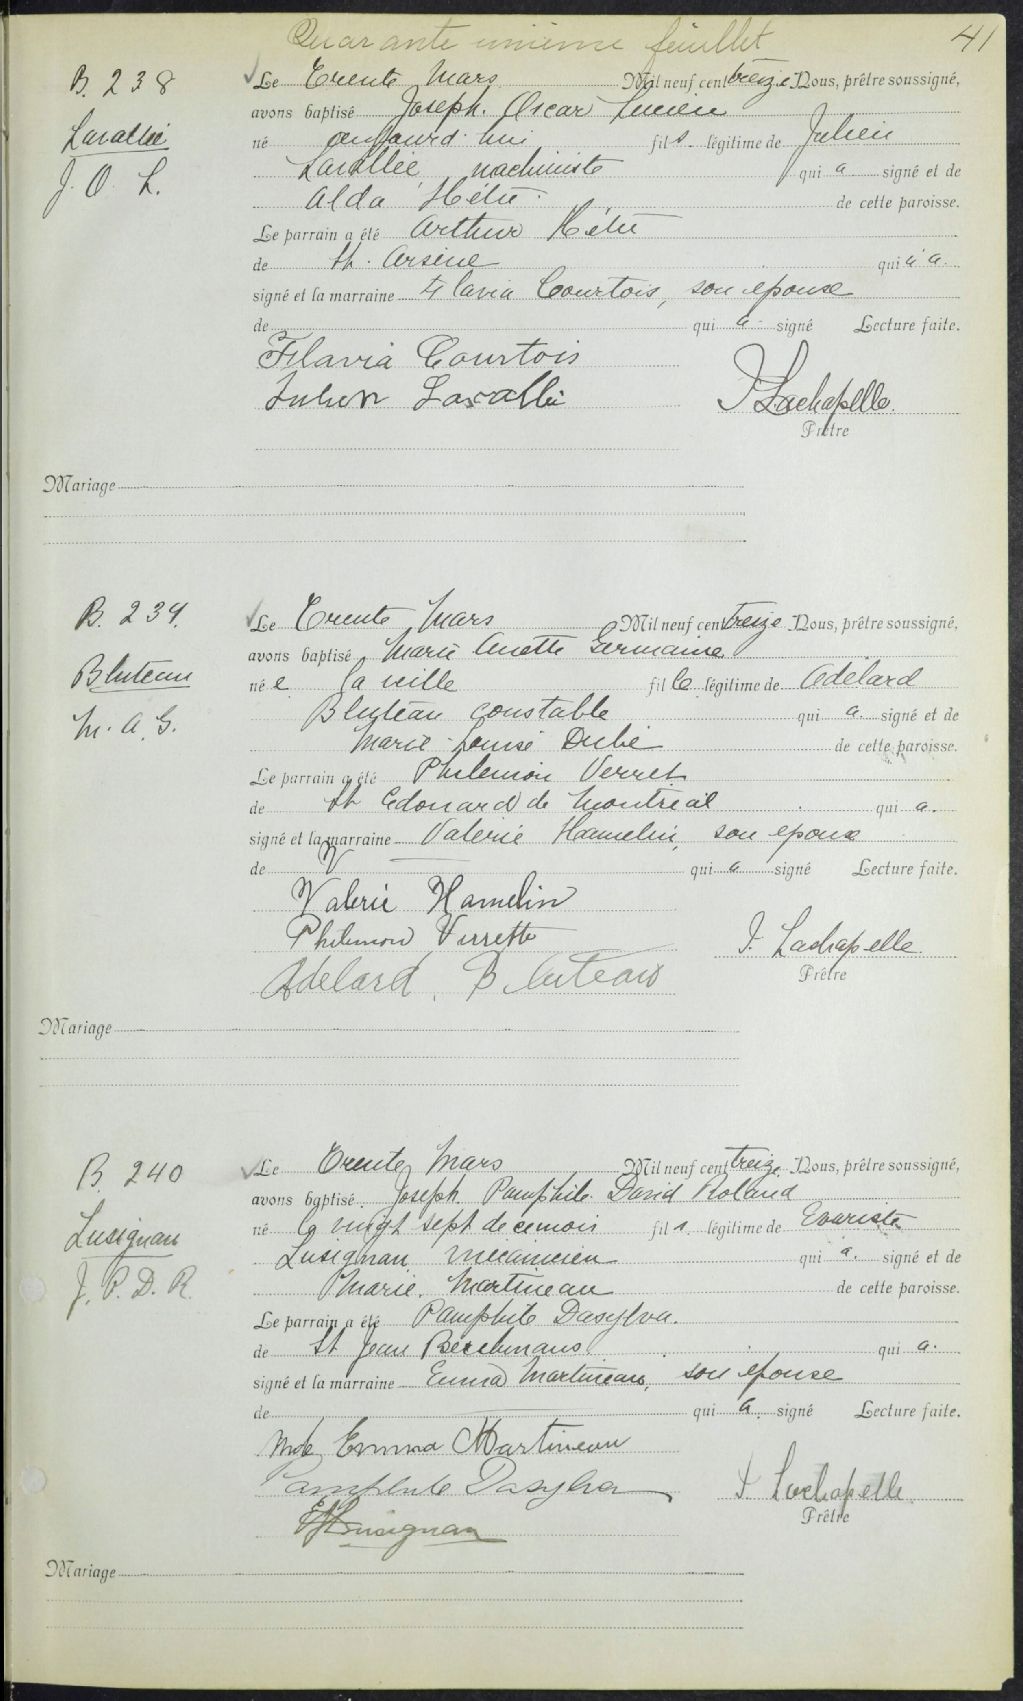 Quarante unième feuillet 41
B. 238
Lavallée
J. O. L.
Le Trente Mars Mil neuf cent treize Nous, prêtre soussigné,
avons baptisé Joseph Oscar Lucien
né aujourd'hui fils légitime de Julien
Lavallée, machiniste qui a signé et de
Alda Hétu de cette paroisse.
Le parrain a été Arthur Hétu
de St. Arsène qui a
signé et la marraine Flavia Courtois, son épouse
de qui a signé Lecture faite.
Flavia Courtois
Julien Lavallée J Lachapelle
Prêtre
Mariage
B. 239.
Bluteau
M. A. G.
Le Trente Mars Mil neuf cent treize Nous, prêtre soussigné,
avons baptisé Marie Anette Germaine
née la veille fille légitime de Adélard
Bluteau constable qui a signé et de
Marie Louise Dubé de cette paroisse.
Le parrain a été Philemon Verret
de St Edouard de Montréal qui a
signé et la marraine Valerie Hamelin, son epouse
de qui a signé Lecture faite.
Valerie Hamelin
Philemon Verrette J. Lachapelle
Adelard Bluteau Prêtre
Mariage
B. 240
Lusignan
J. P. D. R.
Le Trente Mars Mil neuf cent treize Nous, prêtre soussigné,
avons baptisé Joseph Pamphile David Roland
né le vingt sept de ce mois fils légitime de Evariste
Lusignan, mécanicien qui a signé et de
Marie Martineau de cette paroisse.
Le parrain a été Pamphile Dasylva.
de St Jean Berchmans qui a
signé et la marraine Emma Martineau, son épouse
de qui a signé Lecture faite.
Mde Emma Martineau
Pamphile Dasylva J Lachapelle
Lusignan Prêtre
Mariage